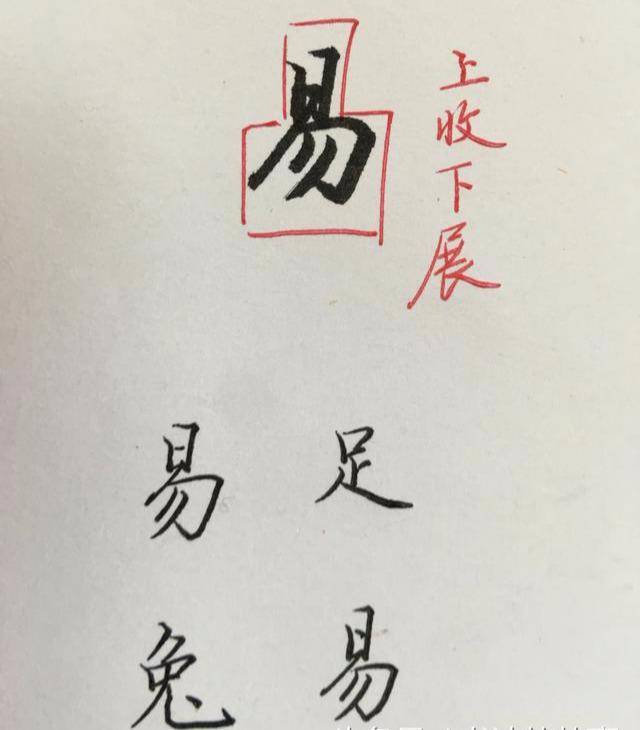 易
上收下展
易 足
兔 易